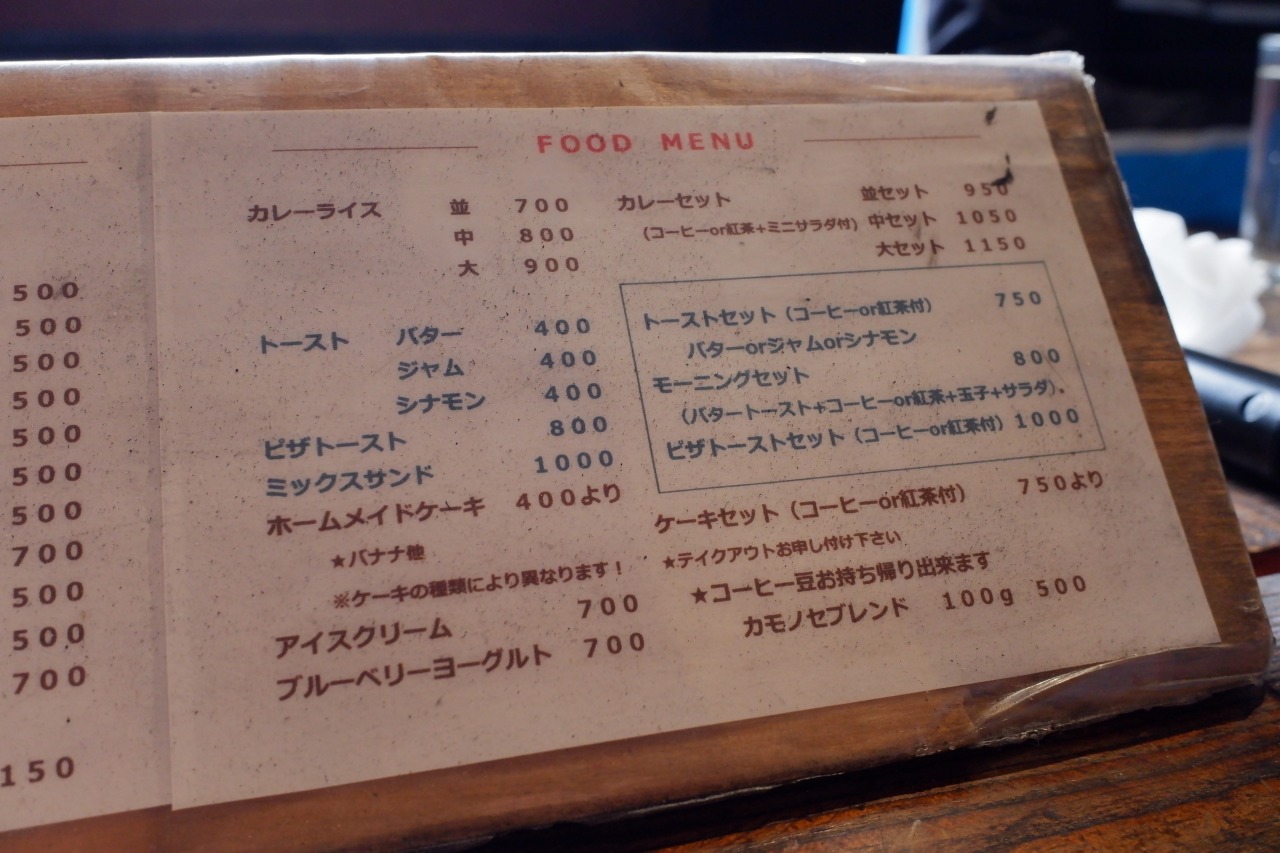 500
500
500
500
500
500
500
700
500
500
700
150
FOOD MENU
カレーライス 並 700
中 800
大 900
トースト バター 400
ジャム 400
シナモン 400
ピザトースト 800
ミックスサンド 1000
ホームメイドケーキ 400より
★バナナ他
※ケーキの種類により異なります！
アイスクリーム 700
ブルーベリーヨーグルト 700
カレーセット 並セット 950
(コーヒーor紅茶+ミニサラダ付) 中セット 1050
大セット 1150
トーストセット（コーヒーor紅茶付） 750
バターorジャムorシナモン
モーニングセット 800
（バタートースト+コーヒーor紅茶+玉子+サラダ）.
ピザトーストセット（コーヒーor紅茶付）1000
ケーキセット（コーヒーor紅茶付） 750より
★テイクアウトお申し付け下さい
★コーヒー豆お持ち帰り出来ます
カモノセブレンド 100g 500